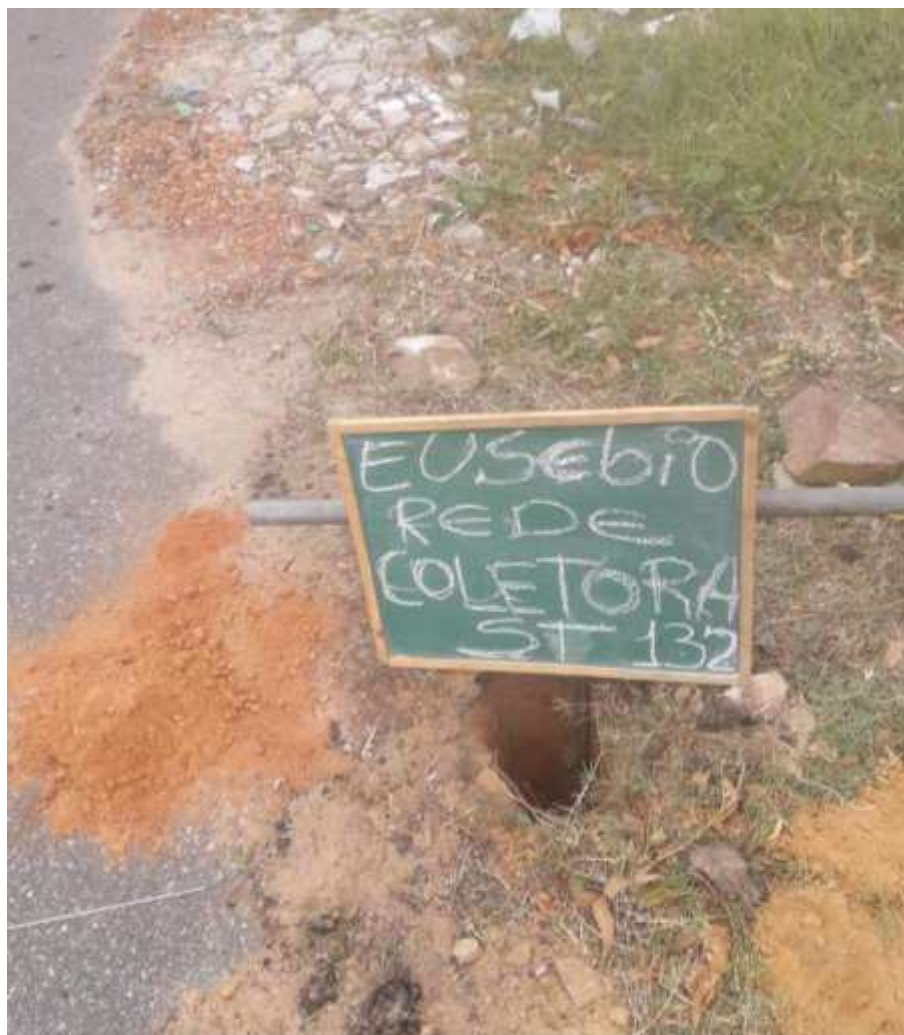 EUSEbiO
REDE
COLETORA
ST 132